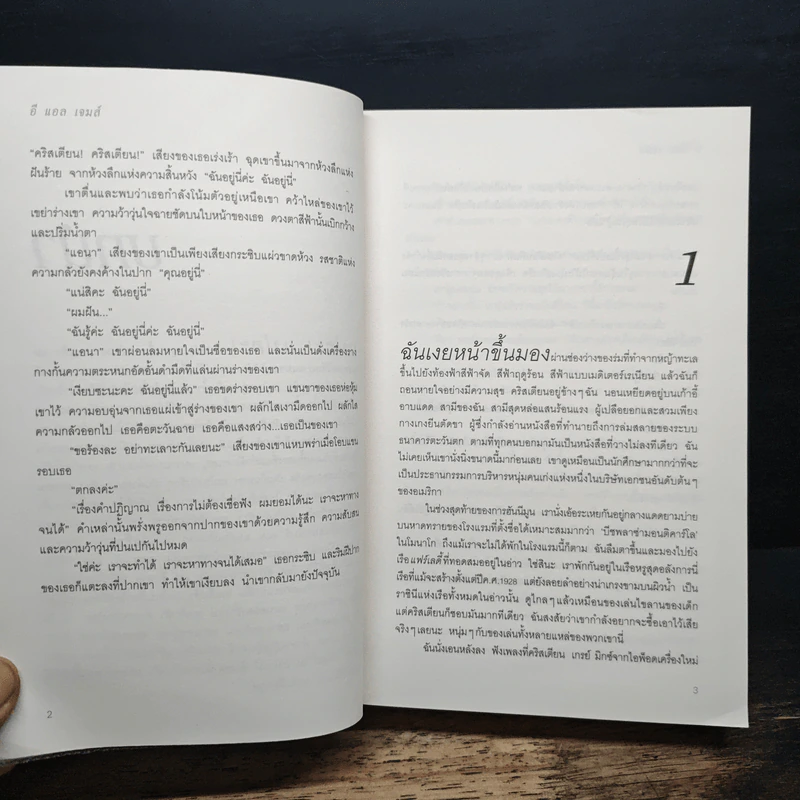 อี แอล เจมส์
“คริสเตียน! คริสเตียน!” เสียงของเธอเร่งเร้า ฉุดเขาขึ้นมาจากห้วงลึกแห่ง
ฝันร้าย จากห้วงลึกแห่งความสิ้นหวัง “ฉันอยู่นี่ค่ะ ฉันอยู่นี่”
เขาตื่นและพบว่าเธอกำลังโน้มตัวอยู่เหนือเขา คว้าไหล่ของเขาไว้
เขย่าร่างเขา ความว้าวุ่นใจฉายชัดบนใบหน้าของเธอ ดวงตาสีฟ้านั้นเบิกกว้าง
และปริ่มน้ำตา
“แอนา” เสียงของเขาเป็นเพียงเสียงกระซิบแผ่วขาดห้วง รสชาติแห่ง
ความกลัวยังคงค้างในปาก “คุณอยู่นี่”
“แน่สิคะ ฉันอยู่นี่”
“ผมฝัน...”
“ฉันรู้ค่ะ ฉันอยู่นี่ค่ะ ฉันอยู่นี่”
“แอนา” เขาผ่อนลมหายใจเป็นชื่อของเธอ และนั่นเป็นดั่งเครื่องราง
กางกั้นความตระหนกอัดอั้นดำมืดที่แล่นผ่านร่างของเขา
“เงียบซะนะคะ ฉันอยู่นี่แล้ว” เธอขดร่างรอบเขา แขนขาของเธอห่อหุ้ม
เขาไว้ ความอบอุ่นจากเธอแผ่เข้าสู่ร่างของเขา ผลักไสเงามืดออกไป ผลักไส
ความกลัวออกไป เธอคือตะวันฉาย เธอคือแสงสว่าง...เธอเป็นของเขา
“ขอร้องละ อย่าทะเลาะกันเลยนะ” เสียงของเขาแหบพร่าเมื่อโอบแขน
รอบเธอ
“ตกลงค่ะ”
“เรื่องคำปฏิญาณ เรื่องการไม่ต้องเชื่อฟัง ผมยอมได้นะ เราจะหาทาง
จนได้” คำเหล่านั้นพรั่งพรูออกจากปากของเขาด้วยความรู้สึก ความสับสน
และความว้าวุ่นที่ปนเปกันไปหมด
“ใช่ค่ะ เราจะทำได้ เราจะหาทางจนได้เสมอ” เธอกระซิบ และริมฝีปาก
ของเธอก็แตะลงที่ปากเขา ทำให้เขาเงียบลง นำเขากลับมายังปัจจุบัน
2
1
ฉันเงยหน้าขึ้นมองผ่านช่องว่างของร่มที่ทำจากหญ้าทะเล
ขึ้นไปยังท้องฟ้าสีฟ้าจัด สีฟ้าฤดูร้อน สีฟ้าแบบเมดิเตอร์เรเนียน แล้วฉันก็
ถอนหายใจอย่างมีความสุข คริสเตียนอยู่ข้างๆ ฉัน นอนเหยียดอยู่บนเก้าอี้
อาบแดด สามีของฉัน สามีสุดหล่อแสนร้อนแรง ผู้เปลือยอกและสวมเพียง
กางเกงยีนตัดขา ผู้ซึ่งกำลังอ่านหนังสือที่ทำนายถึงการล่มสลายของระบบ
ธนาคารตะวันตก ตามที่ทุกคนบอกมามันเป็นหนังสือที่วางไม่ลงทีเดียว ฉัน
ไม่เคยเห็นเขานั่งนิ่งขนาดนี้มาก่อนเลย เขาดูเหมือนเป็นนักศึกษามากกว่าที่จะ
เป็นประธานกรรมการบริหารหนุ่มคนเก่งแห่งหนึ่งในบริษัทเอกชนอันดับต้นๆ
ของอเมริกา
ในช่วงสุดท้ายของการฮันนีมูน เรานั่งเอ้อระเหยกันอยู่กลางแดดยามบ่าย
บนหาดทรายของโรงแรมที่ตั้งชื่อได้เหมาะสมมากว่า ‘บีชพลาซ่ามอนติคาร์โล’
ในโมนาโก ถึงแม้เราจะไม่ได้พักในโรงแรมนี้ก็ตาม ฉันลืมตาขึ้นและมองไปยัง
เรือแฟร์เลดี้ที่ทอดสมออยู่ในอ่าว ใช่สินะ เราพักกันอยู่ในเรือหรูสุดอลังการนี่
เรือที่แม้จะสร้างตั้งแต่ปีค.ศ.1928 แต่ยังลอยลำอย่างน่าเกรงขามบนผิวน้ำ เป็น
ราชินีแห่งเรือทั้งหมดในอ่าวนั้น ดูไกลๆ แล้วเหมือนของเล่นไขลานของเด็ก
แต่คริสเตียนก็ชอบมันมากทีเดียว ฉันสงสัยว่าเขากำลังอยากจะซื้อเอาไว้เสีย
จริงๆ เลยนะ หนุ่มๆ กับของเล่นทั้งหลายแหล่ของพวกเขานี่
ฉันนั่งเอนหลังลง ฟังเพลงที่คริสเตียน เกรย์ มิกซ์จากไอพ็อดเครื่องใหม่
3